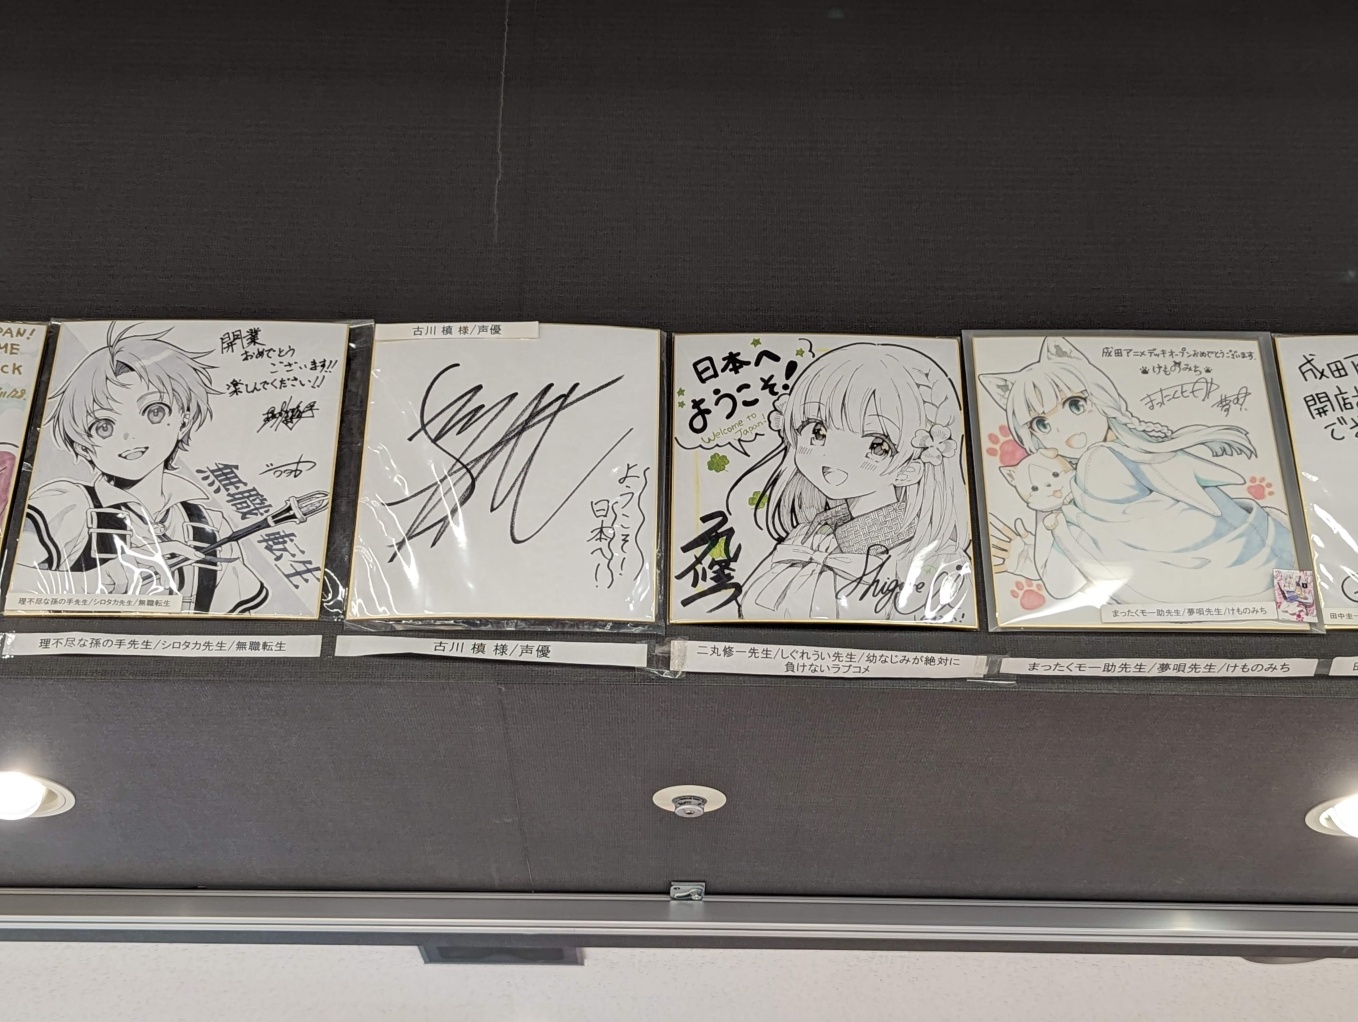 PAN!
ME
CK
11/28.
開業
おめでとう
ございます!!
楽しんでください!!
シロタカ
無職転生
理不尽な孫の手先生/シロタカ先生/無職転生
理不尽な孫の手先生/シロタカ先生/無職転生
古川 槙 様/声優
ようこそ!
日本へ!
古川 槙 様/声優
日本へ
ようこそ!
Welcome to
Japan!
Shigure Ui
二丸修一先生/しぐれうい先生/幼なじみが絶対に
負けないラブコメ
成田アニメデッキオープンおめでとうございます
けものみち
まったくモー助先生/夢唄先生/けものみち
まったくモー助先生/夢唄先生/けものみち
成田
開店
ご
田中圭一